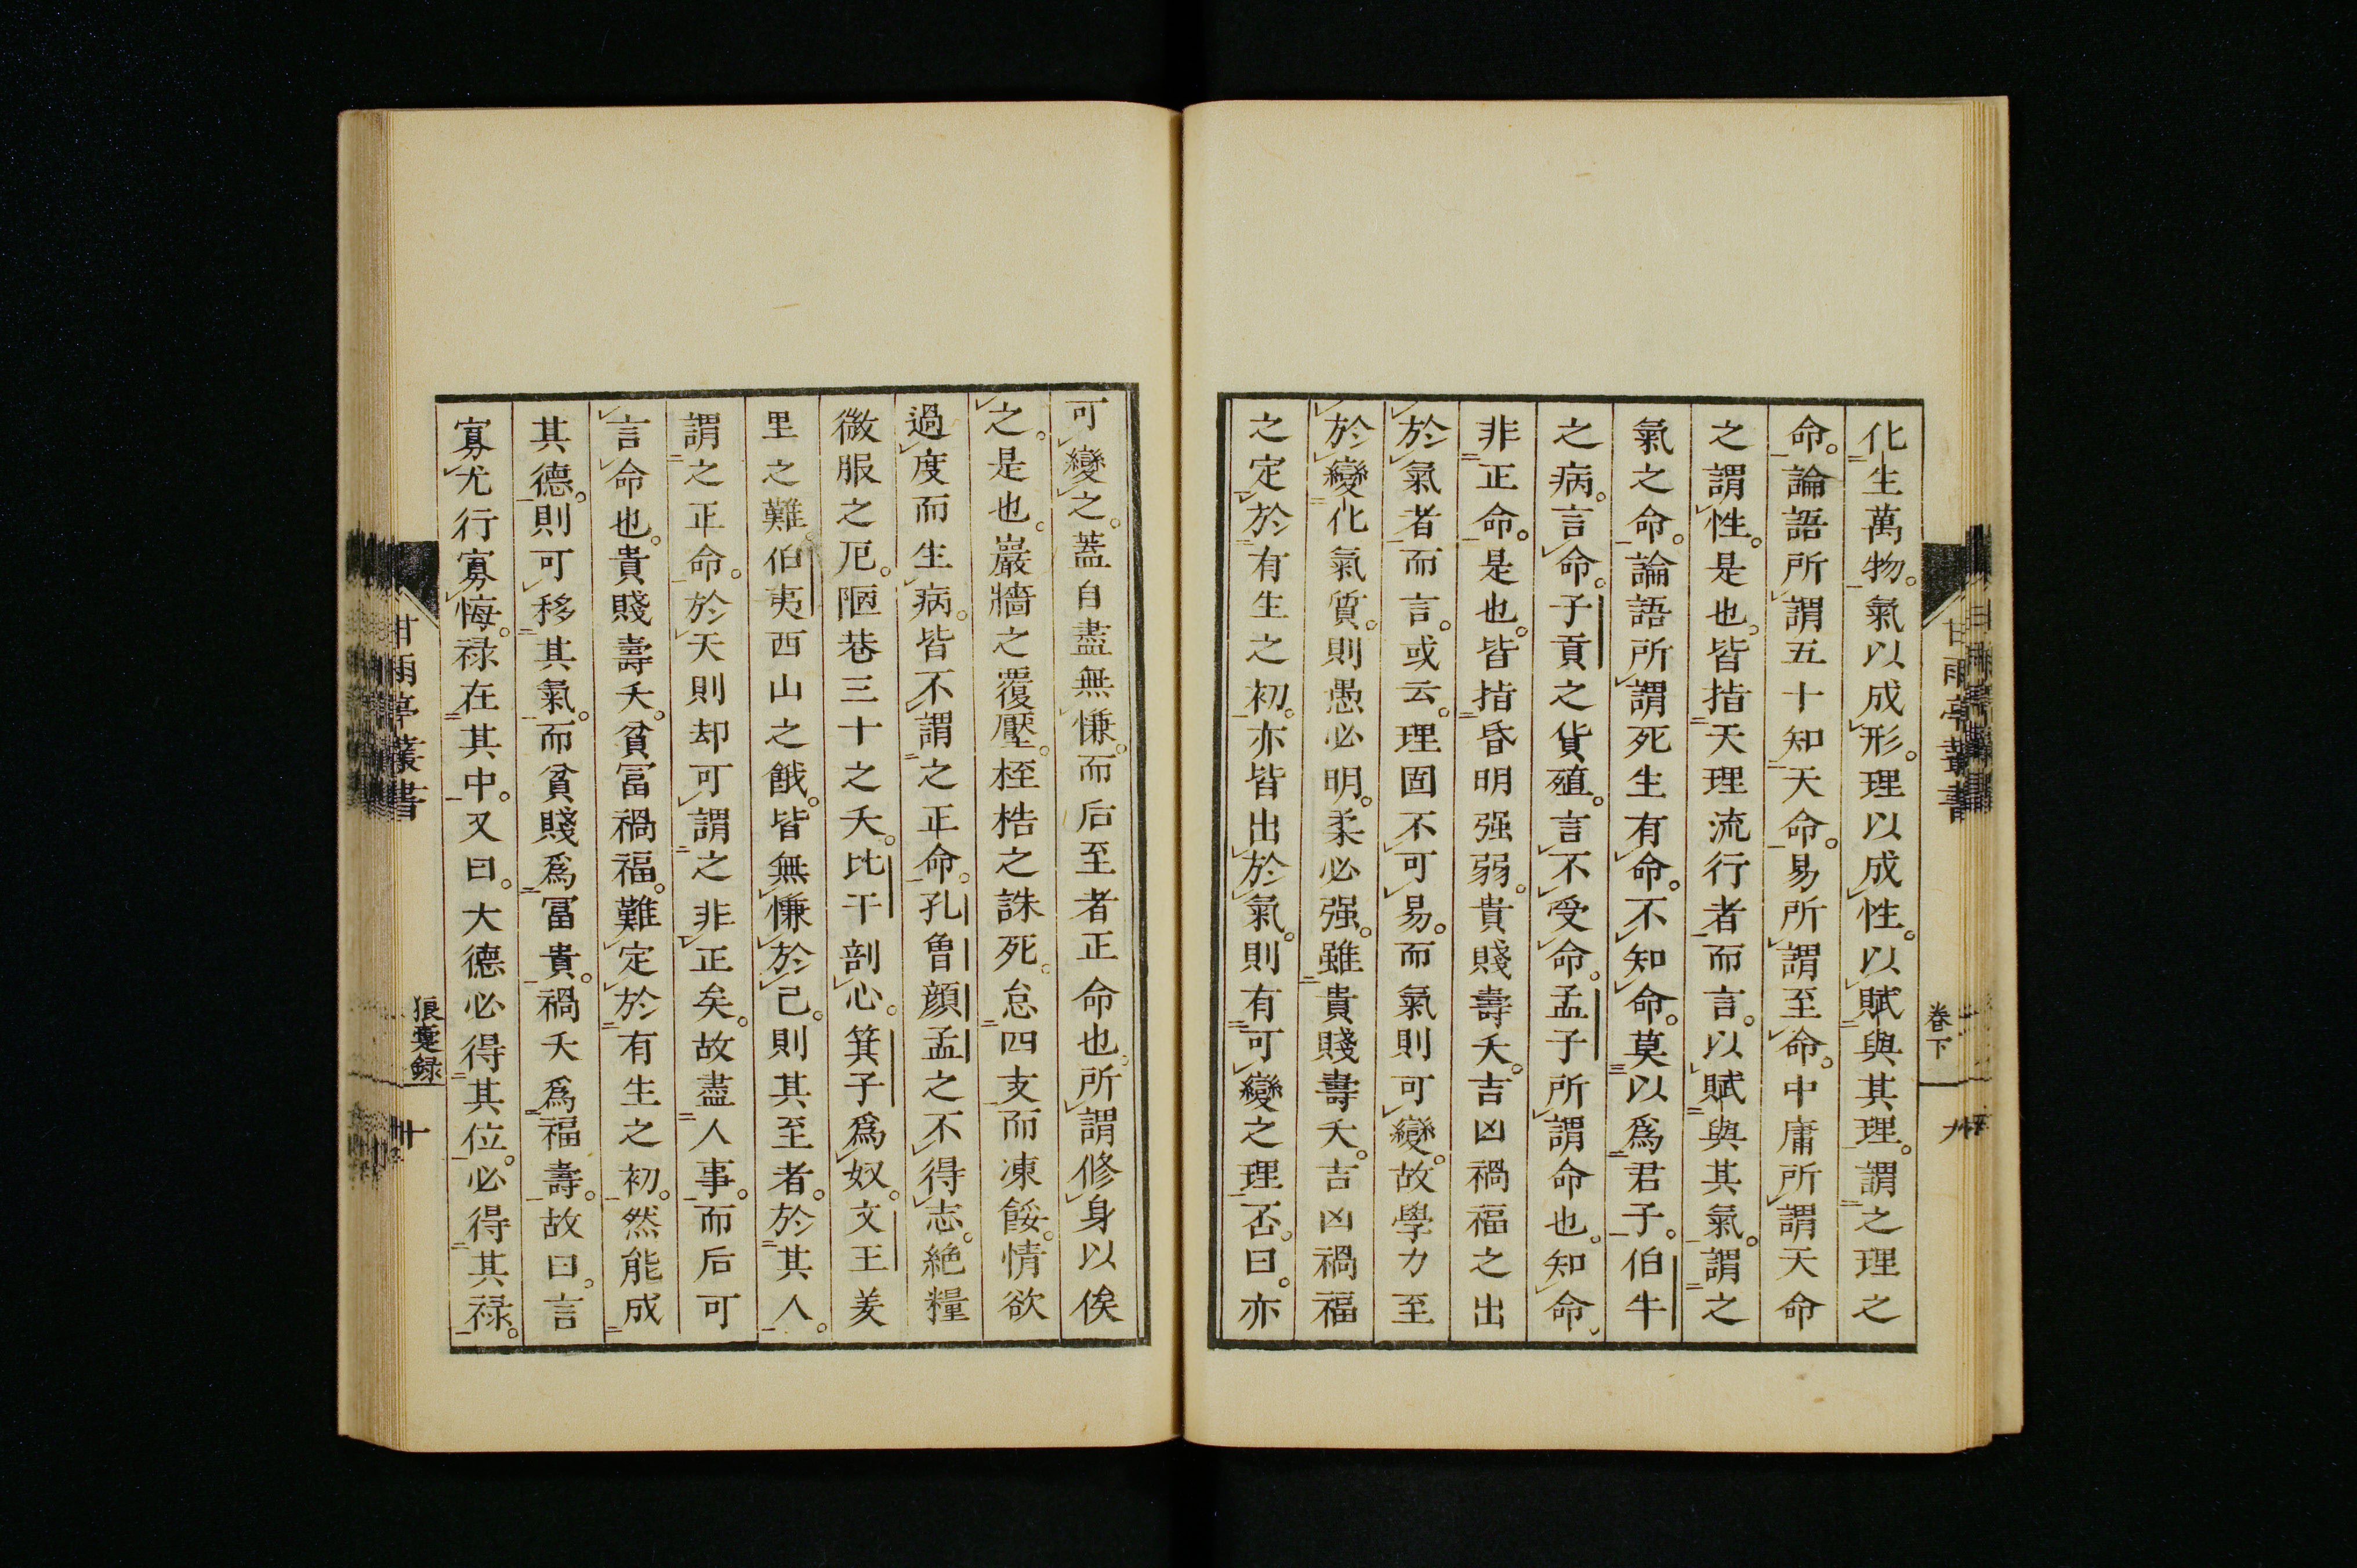 化生萬物。氣以成形。理以成性。以賦與其理。謂之理之
命。論語所謂五十知天命。易所謂至命。中庸所謂天命
之謂性。是也。皆指天理流行者而言。以賦與其氣。謂之
氣之命。論語所謂死生有命。不知命。莫以爲君子。伯牛
之病。言命。子貢之貨殖。言不受命。孟子所謂命也。知命。
非正命。是也。皆指昏明强弱。貴賤壽夭。吉凶禍福之出
於氣者而言。或云。理固不可易。而氣則可變。故學力至
於變化氣質。則愚必明。柔必强。雖貴賤壽夭。吉凶禍福
之定於有生之初。亦皆出於氣。則有可變之理否。曰。亦
甘雨亭叢書
卷下
九
可變之。蓋自盡無慊。而后至者正命也。所謂修身以俟
之。是也。巖牆之覆壓。桎梏之誅死。怠四支而凍餒。情欲
過度而生病。皆不謂之正命。孔魯顔孟之不得志。絶糧
微服之厄。陋巷三十之夭。比干剖心。箕子爲奴。文王羑
里之難。伯夷西山之餓。皆無慊於己。則其至者。於其人。
謂之正命。於天則却可謂之非正矣。故盡人事。而后可
言命也。貴賤壽夭。貧冨禍福。難定於有生之初。然能成
其德。則可移其氣。而貧賤爲冨貴。禍夭爲福壽。故曰。言
寡尤行寡悔。禄在其中。又曰。大德必得其位。必得其禄。
甘雨亭叢書
狼疐録
十